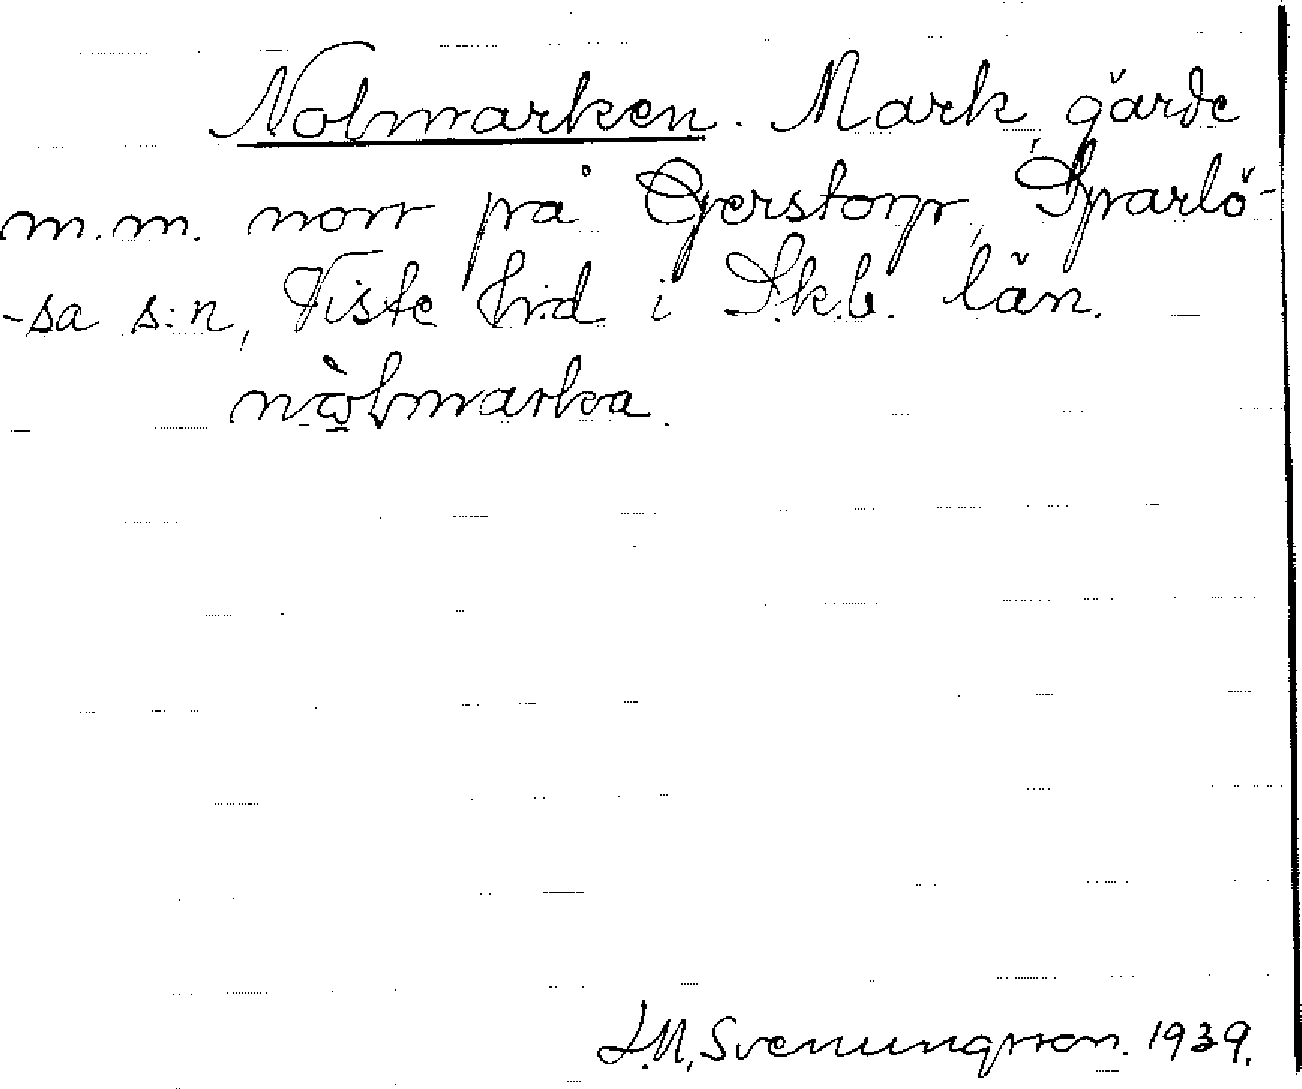 Nolmarken. Mark, gärde
m.m. norr på Gerstorp, Sparlö-
-sa s:n, Viste hrd i Skb. län.
nòlmarka.
J.M. Svenungsson. 1939.